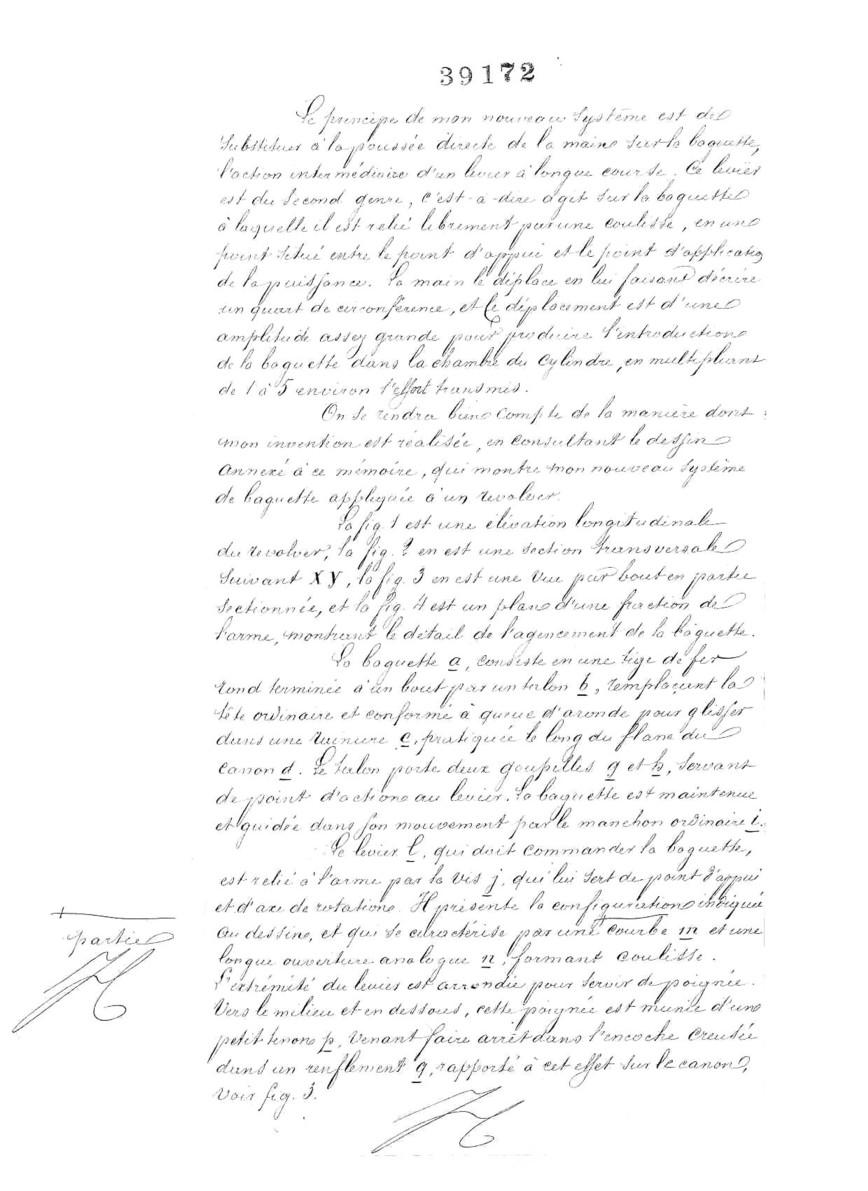 39172
Le principe de mon nouveau système est de
substituer à la poussée directe de la main sur la baguette,
l'action intermédiaire d'un levier à longue course. Ce levier
est du second genre, c'est-à-dire agit sur la baguette
à laquelle il est relié librement par une coulisse, en un
point situé entre le point d'appui et le point d'application
de la puissance. La main le déplace en lui faisant décrire
un quart de circonférence, et ce déplacement est d'une
amplitude assez grande pour produire l'introduction
de la baguette dans la chambre du cylindre, en multipliant
de 1 à 5 environ l'effort transmis.
On se rendra bien compte de la manière dont
mon invention est réalisée, en consultant le dessin
annexé à ce mémoire, qui montre mon nouveau système
de baguette appliquée à un revolver.
La fig. 1 est une élévation longitudinale
du revolver, la fig. 2 en est une section transversale
suivant XY, la fig. 3 en est une vue par bout en partie
sectionnée, et la fig. 4 est un plan d'une fraction de
l'arme, montrant le détail de l'agencement de la baguette.
La baguette a, consiste en une tige de fer
rond terminée à un bout par un talon b, remplaçant la
tête ordinaire et conformé à queue d'aronde pour glisser
dans une rainure c, pratiquée le long du flanc du
canon d. Le talon porte deux goupilles g et h, servant
de point d'action au levier. La baguette est maintenue
et guidée dans son mouvement par le manchon ordinaire i.
Le levier l, qui doit commander la baguette,
est relié à l'arme par la vis j, qui lui sert de point d'appui
et d'axe de rotation. Il présente la configuration indiquée
au dessin, et qui se caractérise par une courbe m et une
partie
longue ouverture analogue n, formant coulisse.
L'extrémité du levier est arrondie pour servir de poignée.
Vers le milieu et en dessous, cette poignée est munie d'un
petit tenon p, venant faire arrêt dans l'encoche creusée
dans un renflement q, rapporté à cet effet sur le canon,
voir fig. 3.